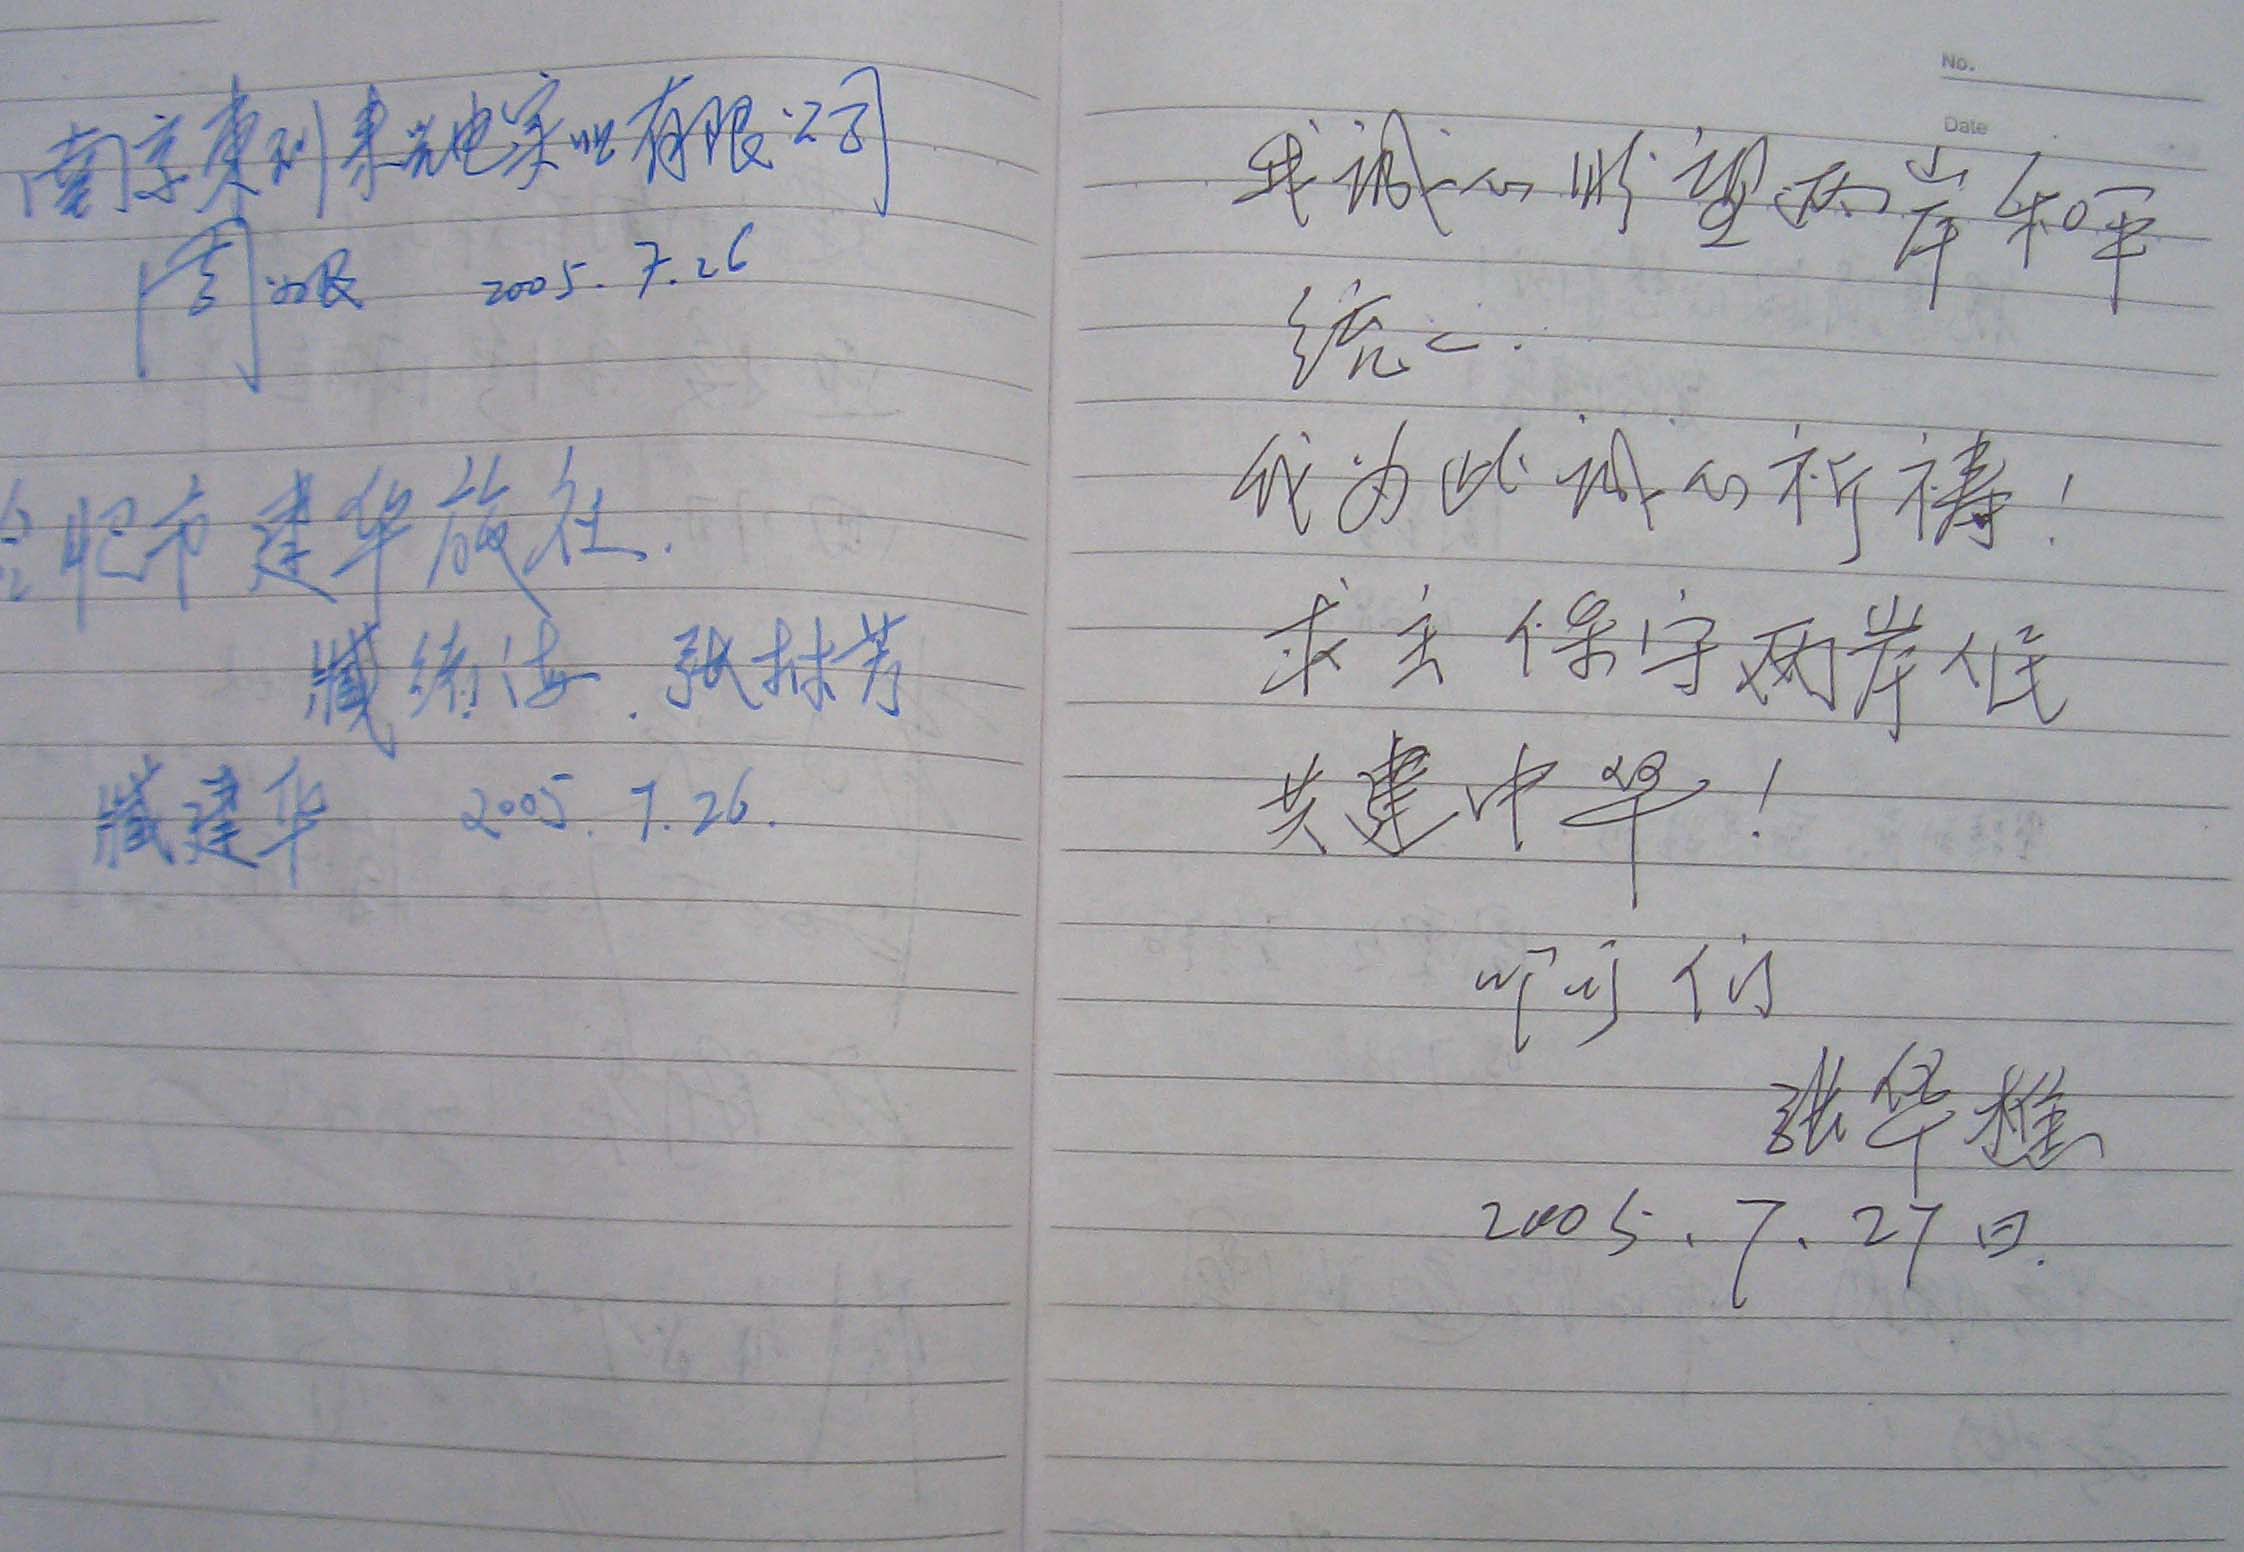 南京東利来光电实业有限公司
周 2005.7.26
合肥市建华旅社.
臧绪海.张林芳
臧建华 2005.7.26.
No.
Date
我诚心盼望两岸和平
统一.
我为此诚心祈祷!
求主保守两岸人民
共建中华!
阿门
张华雅
2005.7.27日.